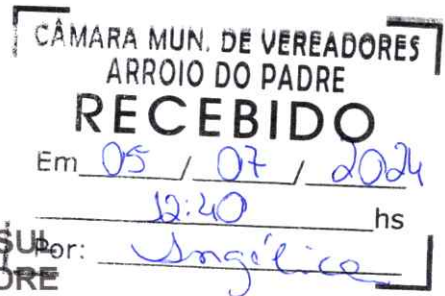 CÂMARA MUN. DE VEREADORES
ARROIO DO PADRE
RECEBIDO
Em 05 / 07 / 2024
12:40 hs
SUL
Por: Angélica
DRE